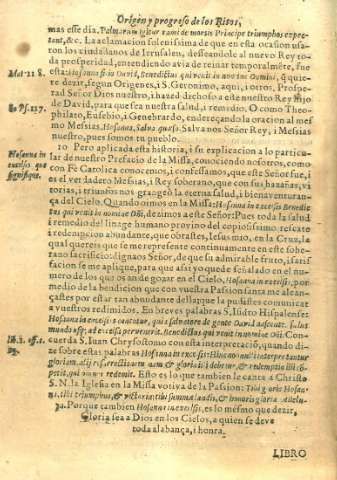 Origen y progreso de los Ritos,
mas esse dia. Palmarum igitur rami de mortis Principe triumphos expec-
tant, &c. La aclamacion solenissima de que en esta ocasion usa-
ron los ciudadanos de Ierusalen, desseandole al nuevo Rey to-
da prosperidad, entendiendo avia de reinar temporalmẽte, fue
Mat 21 8.
esta: Hosanna filio David, benedictus qui venit in nomine Domini, q̃ quie-
re dezir, segun Origenes, i S. Geronimo, aqui, i otros. Prospe-
rad Señor Dios nuestro, i hazed dichoso a este nuestro Rey hijo
Do Ps. 117.
de David, para que sea nuestra salud, i remedio. O como Theo-
philato, Eusebio, i Genebrardo, endereçando la oracion al mes-
mo Messias, Hosanna, Salva quæso. Salvanos Señor Rey, i Messias
nuestro, pues somos tu pueblo.
10 Pero aplicada esta historia, i su explicacion a lo particu-
Hosanna in excelsis que significa.
lar de nuestro Prefacio de la Missa, conociendo nosotros, como
con Fè Catolica conocemos, i confessamos, que este Señor fue, i
es el verdadero Messias, i Rey soberano, que con sus hazañas, vi-
torias, i triumfos nos grangeò la eterna salud, i bienaventuran-
ça del Cielo. Quando oimos en la Missa: Hosanna in excelsis Benedic-
tus qui venit in nomine Dñi, dezimos a este Señor: Pues toda la salud
i remedio del linage humano provino del copiosissimo rescate
i redempcion abundante, que obrastes, Iesus mio, en la Cruz, la
qual quereis que se me represente continuamente en este sobe-
rano sacrificio: dignaos Señor, de que su admirable fruto, i satis-
facion se me aplique, para que assi yo quede señalado en el nu-
mero de los que os an de goar en el Cielo, Hosanna in excelsis, por
medio de la bendicion que con vuestra Passion santa me alcan-
çastes por estar tan abundante della que la pudistes comunicar
a vuestros redimidos. En breves palabras S. Isidro Hispalense:
Hosanna in excelsis cantatur, quia salvatore de gente David adveniente, salus
mundo usq; ad excelsa pervenerit. Benedictus qui venit in nomine Dñi: Con-
cuerda S. Iuan Chrysostomo con esta interpretaciõ, quando di-
ze sobre estas palabras Hosanna in excelsis:
gloriam, alij
petit, qui Esto es lo que tambien le canta a Christo
S. N. la Iglesia en la Missa votiva de la Passion: Tibi gloria Hosan-
na, tibi triumphus, & victoria: tibi summa laudis, & honoris gloria. Allelu-
ya. Porque tambien Hosanna in excelsis, es lo mesmo que dezir,
Gloria sea a Dios en los Cielos, a quien se deve
toda alabança, i honra.
LIBRO